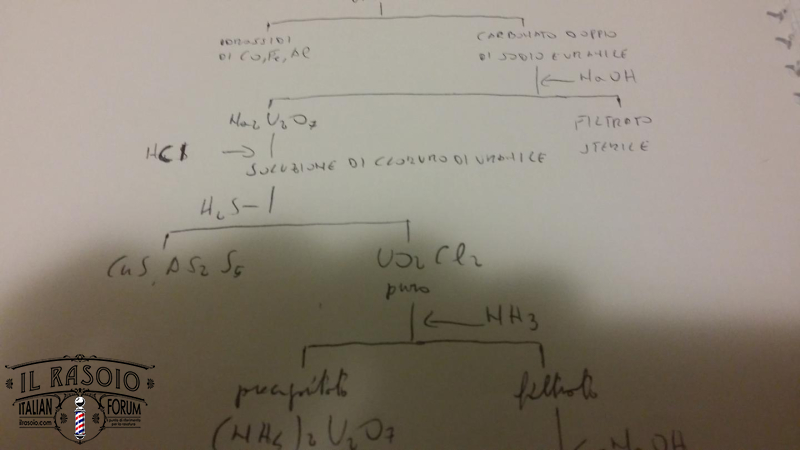 IDROSSIDI
DI CO, Fe, AL
CARBONATO DOPPIO
DI SODIO E URANILE
NaOH
Na2 U2O7
FILTRATO
STERILE
HCl
SOLUZIONE DI CLORURO DI URANILE
H2S
CuS, AS2 S5
UO2 Cl2
puro
NH3
precipitato
filtrato
(NH4)2 U2O7
NaOH
IL RASOIO
ITALIAN FORUM
ilrasoio.com